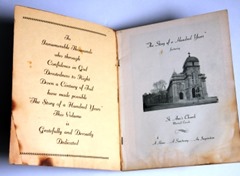 To
Innumerable Thousands
who through
Confidence in God
Devotedness to Right
Down a Century of Toil
have made possible
"The Story of a Hundred Years"
This Volume
is
Gratefully and Devoutly
Dedicated
"The Story of a Hundred Years"
St. Ann's Church
A Shrine A Sanctuary An Inspiration